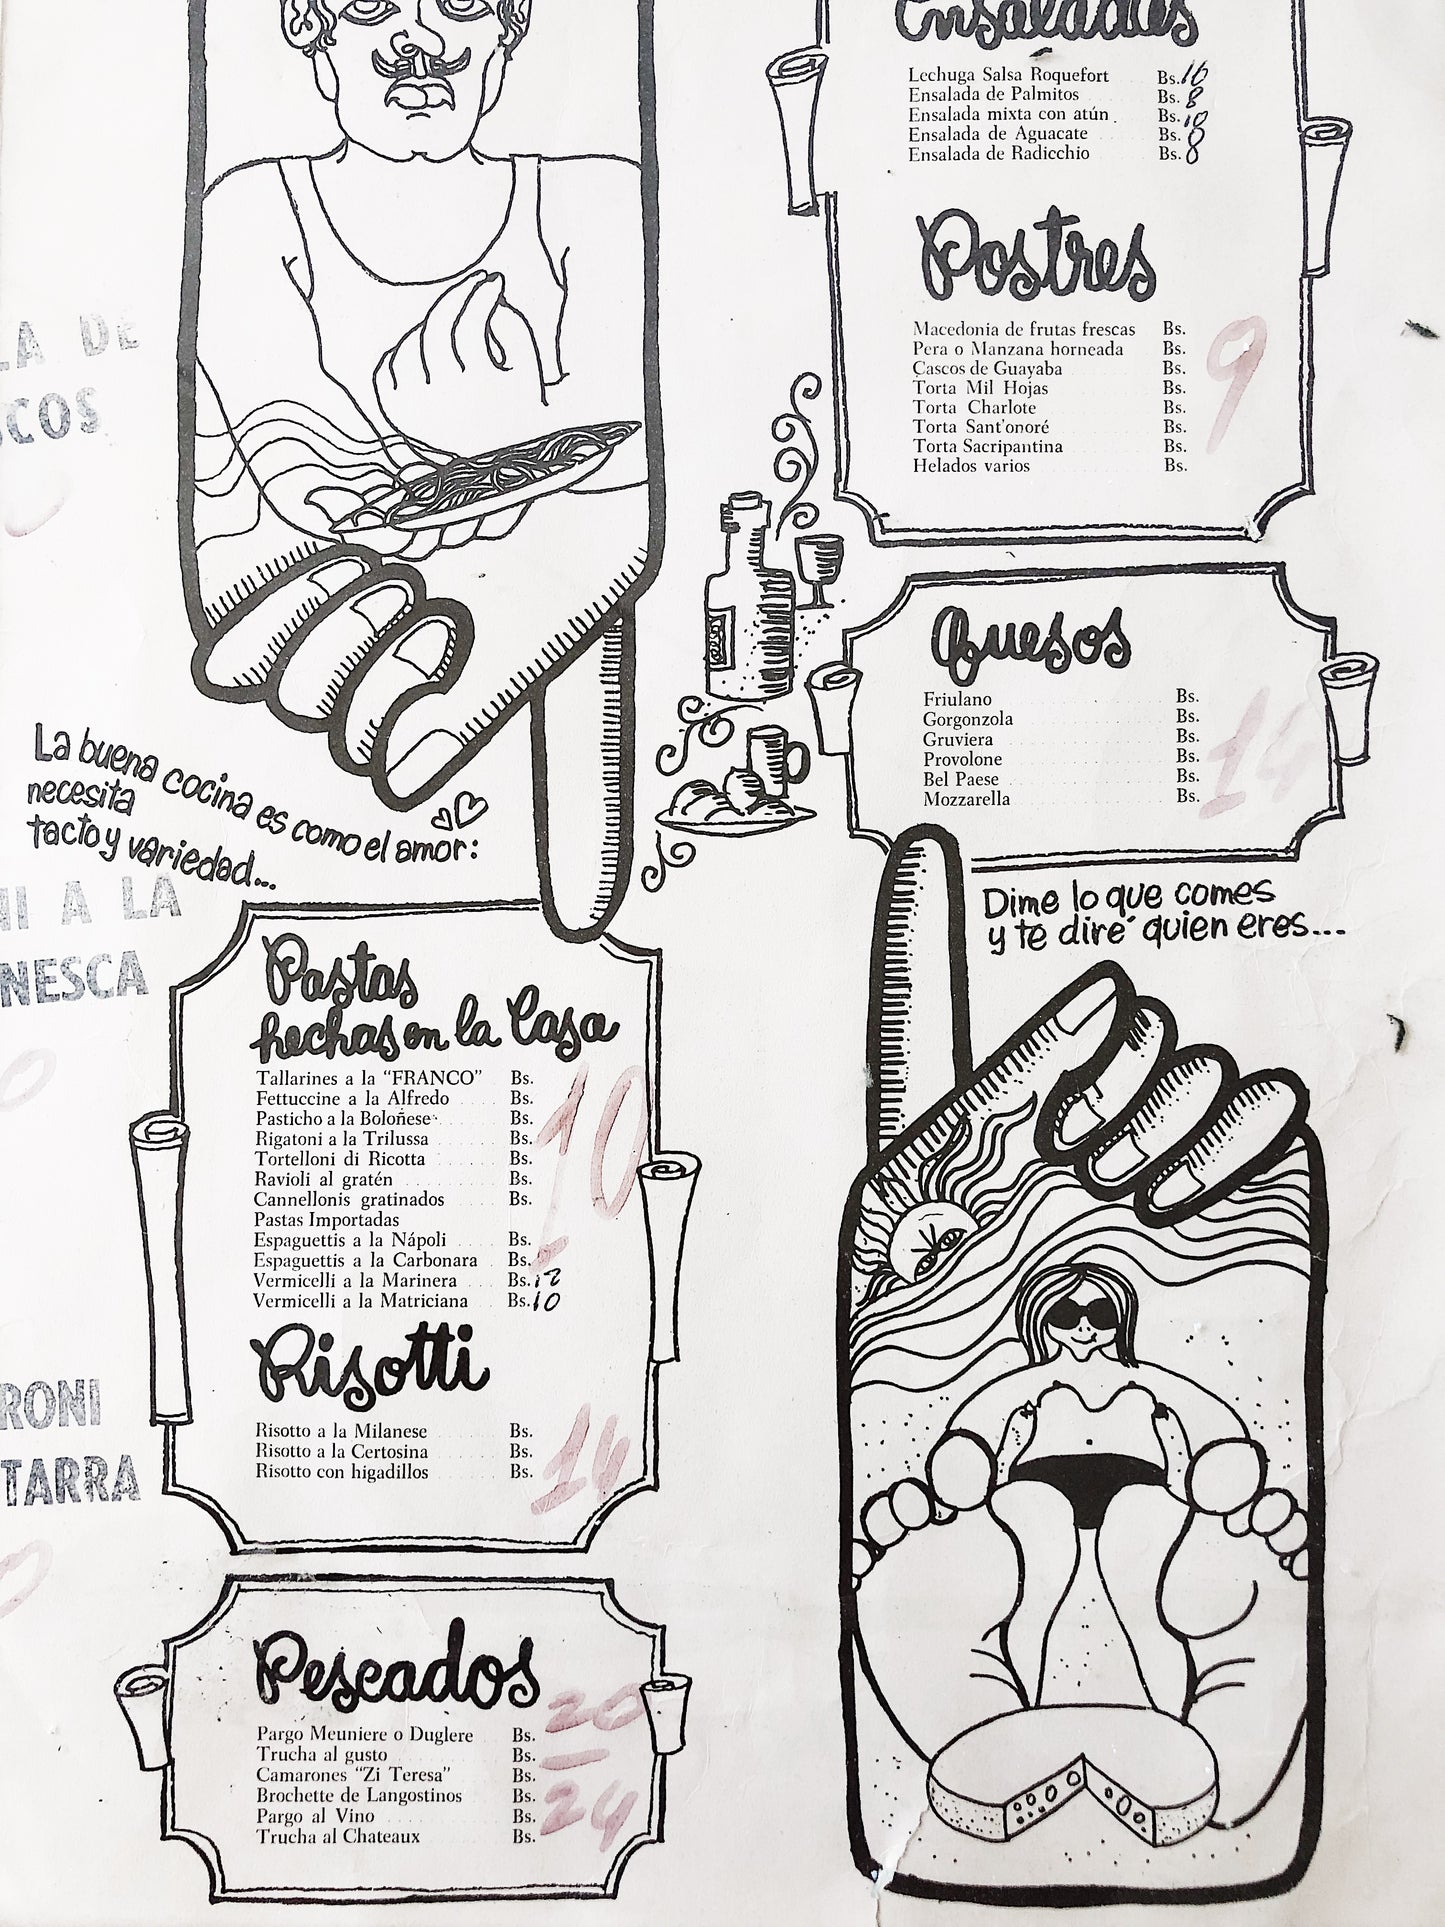 LA DE
COS
NI A LA
NESCA
RONI
TARRA
La buena cocina es como el amor:
necesita
tacto y variedad...
Pastas
hechas en la Casa
Tallarines a la "FRANCO" Bs.
Fettuccine a la Alfredo Bs.
Pasticho a la Boloñese Bs.
Rigatoni a la Trilussa Bs.
Tortelloni di Ricotta Bs.
Ravioli al gratén Bs.
Cannellonis gratinados Bs.
10
Pastas Importadas
Espaguettis a la Nápoli Bs.
Espaguettis a la Carbonara Bs.
Vermicelli a la Marinera Bs. 12
Vermicelli a la Matriciana Bs. 10
Risotti
Risotto a la Milanese Bs.
Risotto a la Certosina Bs.
Risotto con higadillos Bs.
14
Pescados
20
Pargo Meuniere o Duglere Bs.
Trucha al gusto Bs.
Camarones "Zi Teresa" Bs.
Brochette de Langostinos Bs.
Pargo al Vino Bs.
Trucha al Chateaux Bs.
24
Ensaladas
Lechuga Salsa Roquefort Bs. 16
Ensalada de Palmitos Bs. 8
Ensalada mixta con atún Bs. 10
Ensalada de Aguacate Bs. 8
Ensalada de Radicchio Bs. 8
Postres
Macedonia de frutas frescas Bs.
Pera o Manzana horneada Bs.
Cascos de Guayaba Bs.
Torta Mil Hojas Bs.
Torta Charlote Bs.
Torta Sant'onoré Bs.
Torta Sacripantina Bs.
Helados varios Bs.
9
Quesos
Friulano Bs.
Gorgonzola Bs.
Gruviera Bs.
Provolone Bs.
Bel Paese Bs.
Mozzarella Bs.
14
Dime lo que comes
y te diré quien eres...